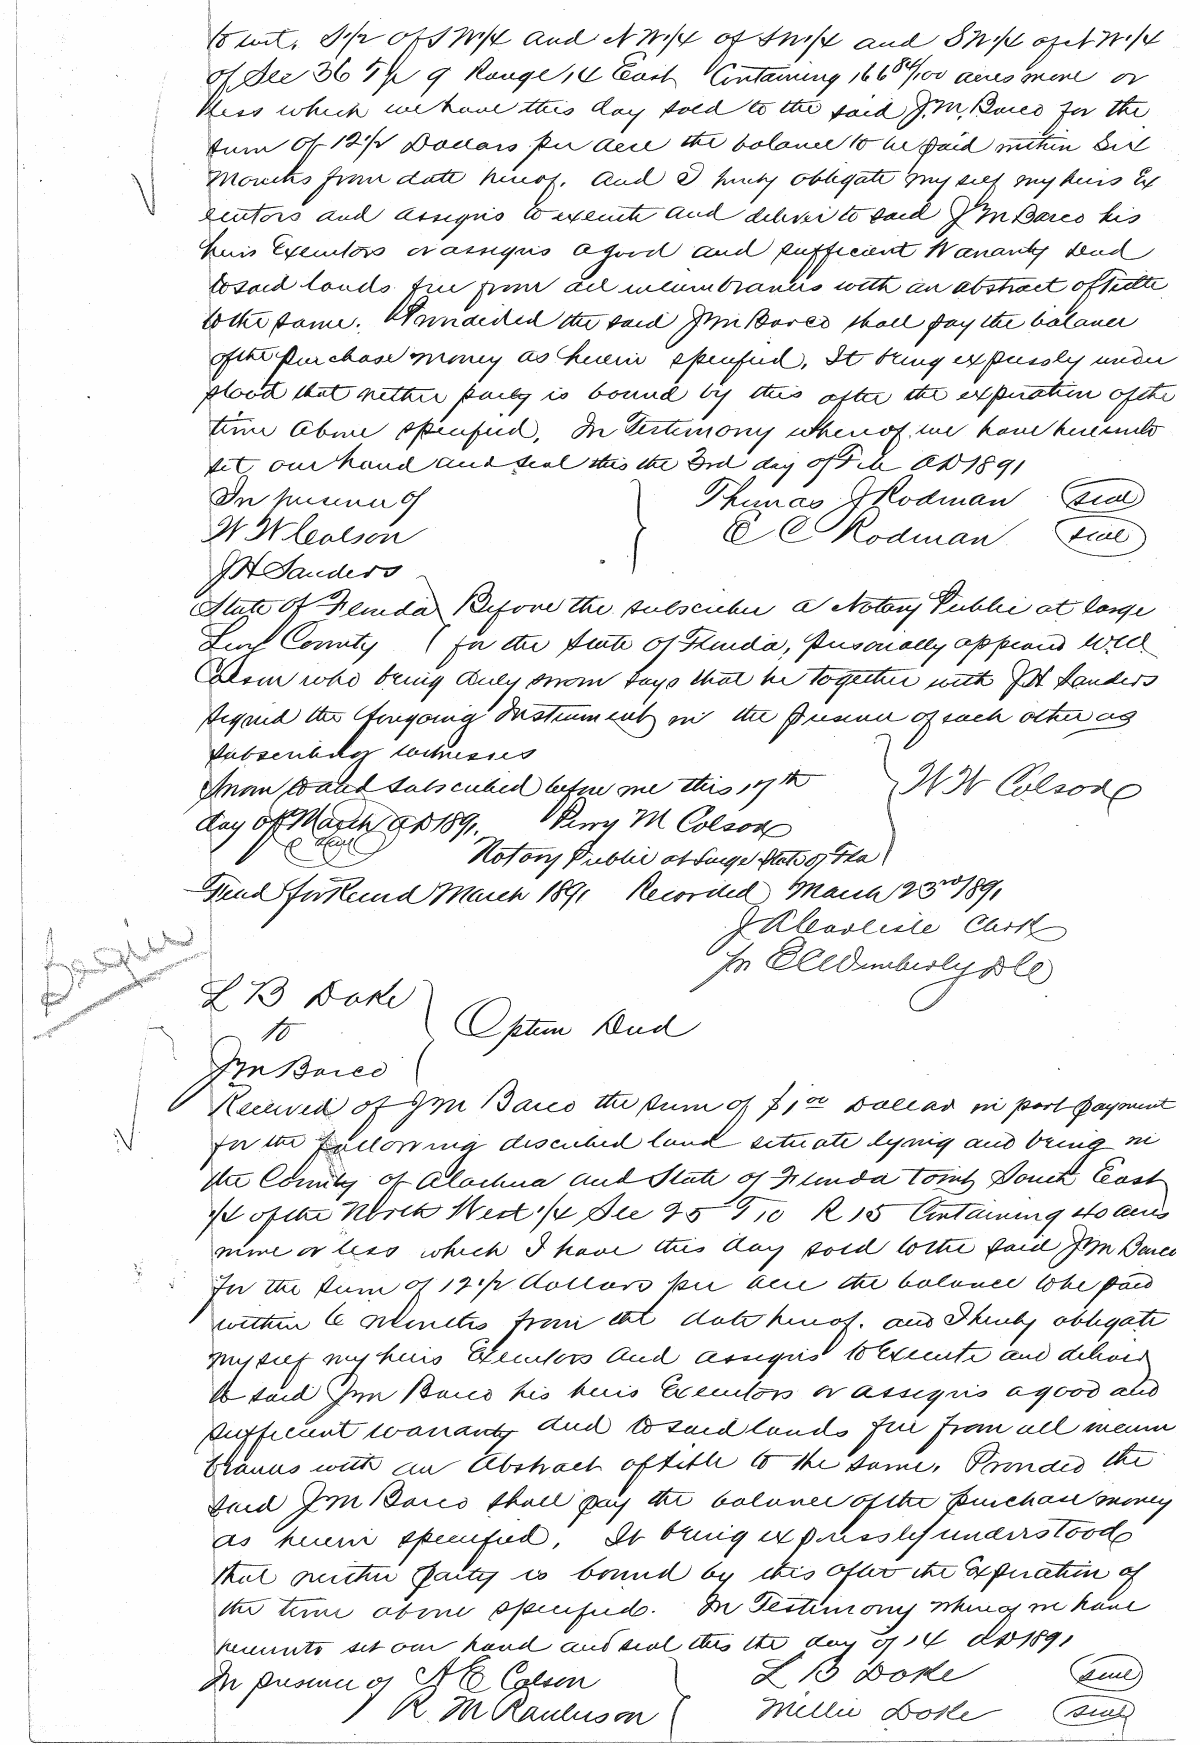 to wit. S1/2 of SW1/4 and NW1/4 of SW1/4 and SW1/4 of NW1/4
of Sec 36 Tp 9 Range 14 East Containing 166 84/100 acres more or
less which we have this day sold to the said J.M. Barco for the
sum of 12 1/2 Dollars per acre the balance to be paid within Six
Months from date hereof. And I hereby obligate my self my heirs Ex
ecutors and assigns to execute and deliver to said J M Barco his
heirs Executors or assigns a good and sufficient Warranty Deed
to said lands free from all incumbrances with an abstract of Title
to the same. Provideded the said J M Barco shall pay the balance
of the purchase money as herein specified. It being expressly under
stood that neither party is bound by this after the expiration of the
time above specified. In Testimony whereof we have hereunto
set our hand and seal this the 3rd day of Feb AD 1891
In presence of Thomas J Rodman seal
W W Colson E C Rodman seal
J H Sanders
State of Florida Before the subscriber a Notary Public at large
Levy County for the State of Florida, personally appeared W W
Colson who being duly sworn says that he together with J H Sanders
signed the foregoing Instrument in the presence of each other as
subscribing witnesses
Sworn to and subscribed before me this 17th W W Colson
day of March AD 1891. Perry M Colson
seal Notary Public at Large State of Fla
Filed for Record March 1891 Recorded March 23rd 1891
J A Carlisle Clerk
Begin pr E C Wimberly D C
L B Doke
to Option Deed
J M Barco
Received of J M Barco the sum of $1 00 Dollar in part payment
for the following described land situate lying and being in
the County of Alachua and State of Florida towit South East
1/4 of the North West 1/4 Sec 25 T 10 R 15 Containing 40 acres
more or less which I have this day sold to the said J M Barco
for the sum of 12 1/2 dollars per acre the balance to be paid
within 6 Months from the date hereof. and I hereby obligate
myself my heirs Executors and assigns to Execute and deliver
to said J M Barco his heirs Executors or assigns a good and
sufficient warranty deed to said lands free from all incum
brances with an Abstract of title to the same. Provided the
said J M Barco shall pay the balance of the purchase money
as herein specified. It being expressly understood
that neither party is bound by this after the Expiration of
the time above specified. In Testimony whereof we have
hereunto set our hand and seal this the day of 14 AD 1891
In presence of A E Colson L B Doke seal
R M Raulerson Millie Doke seal